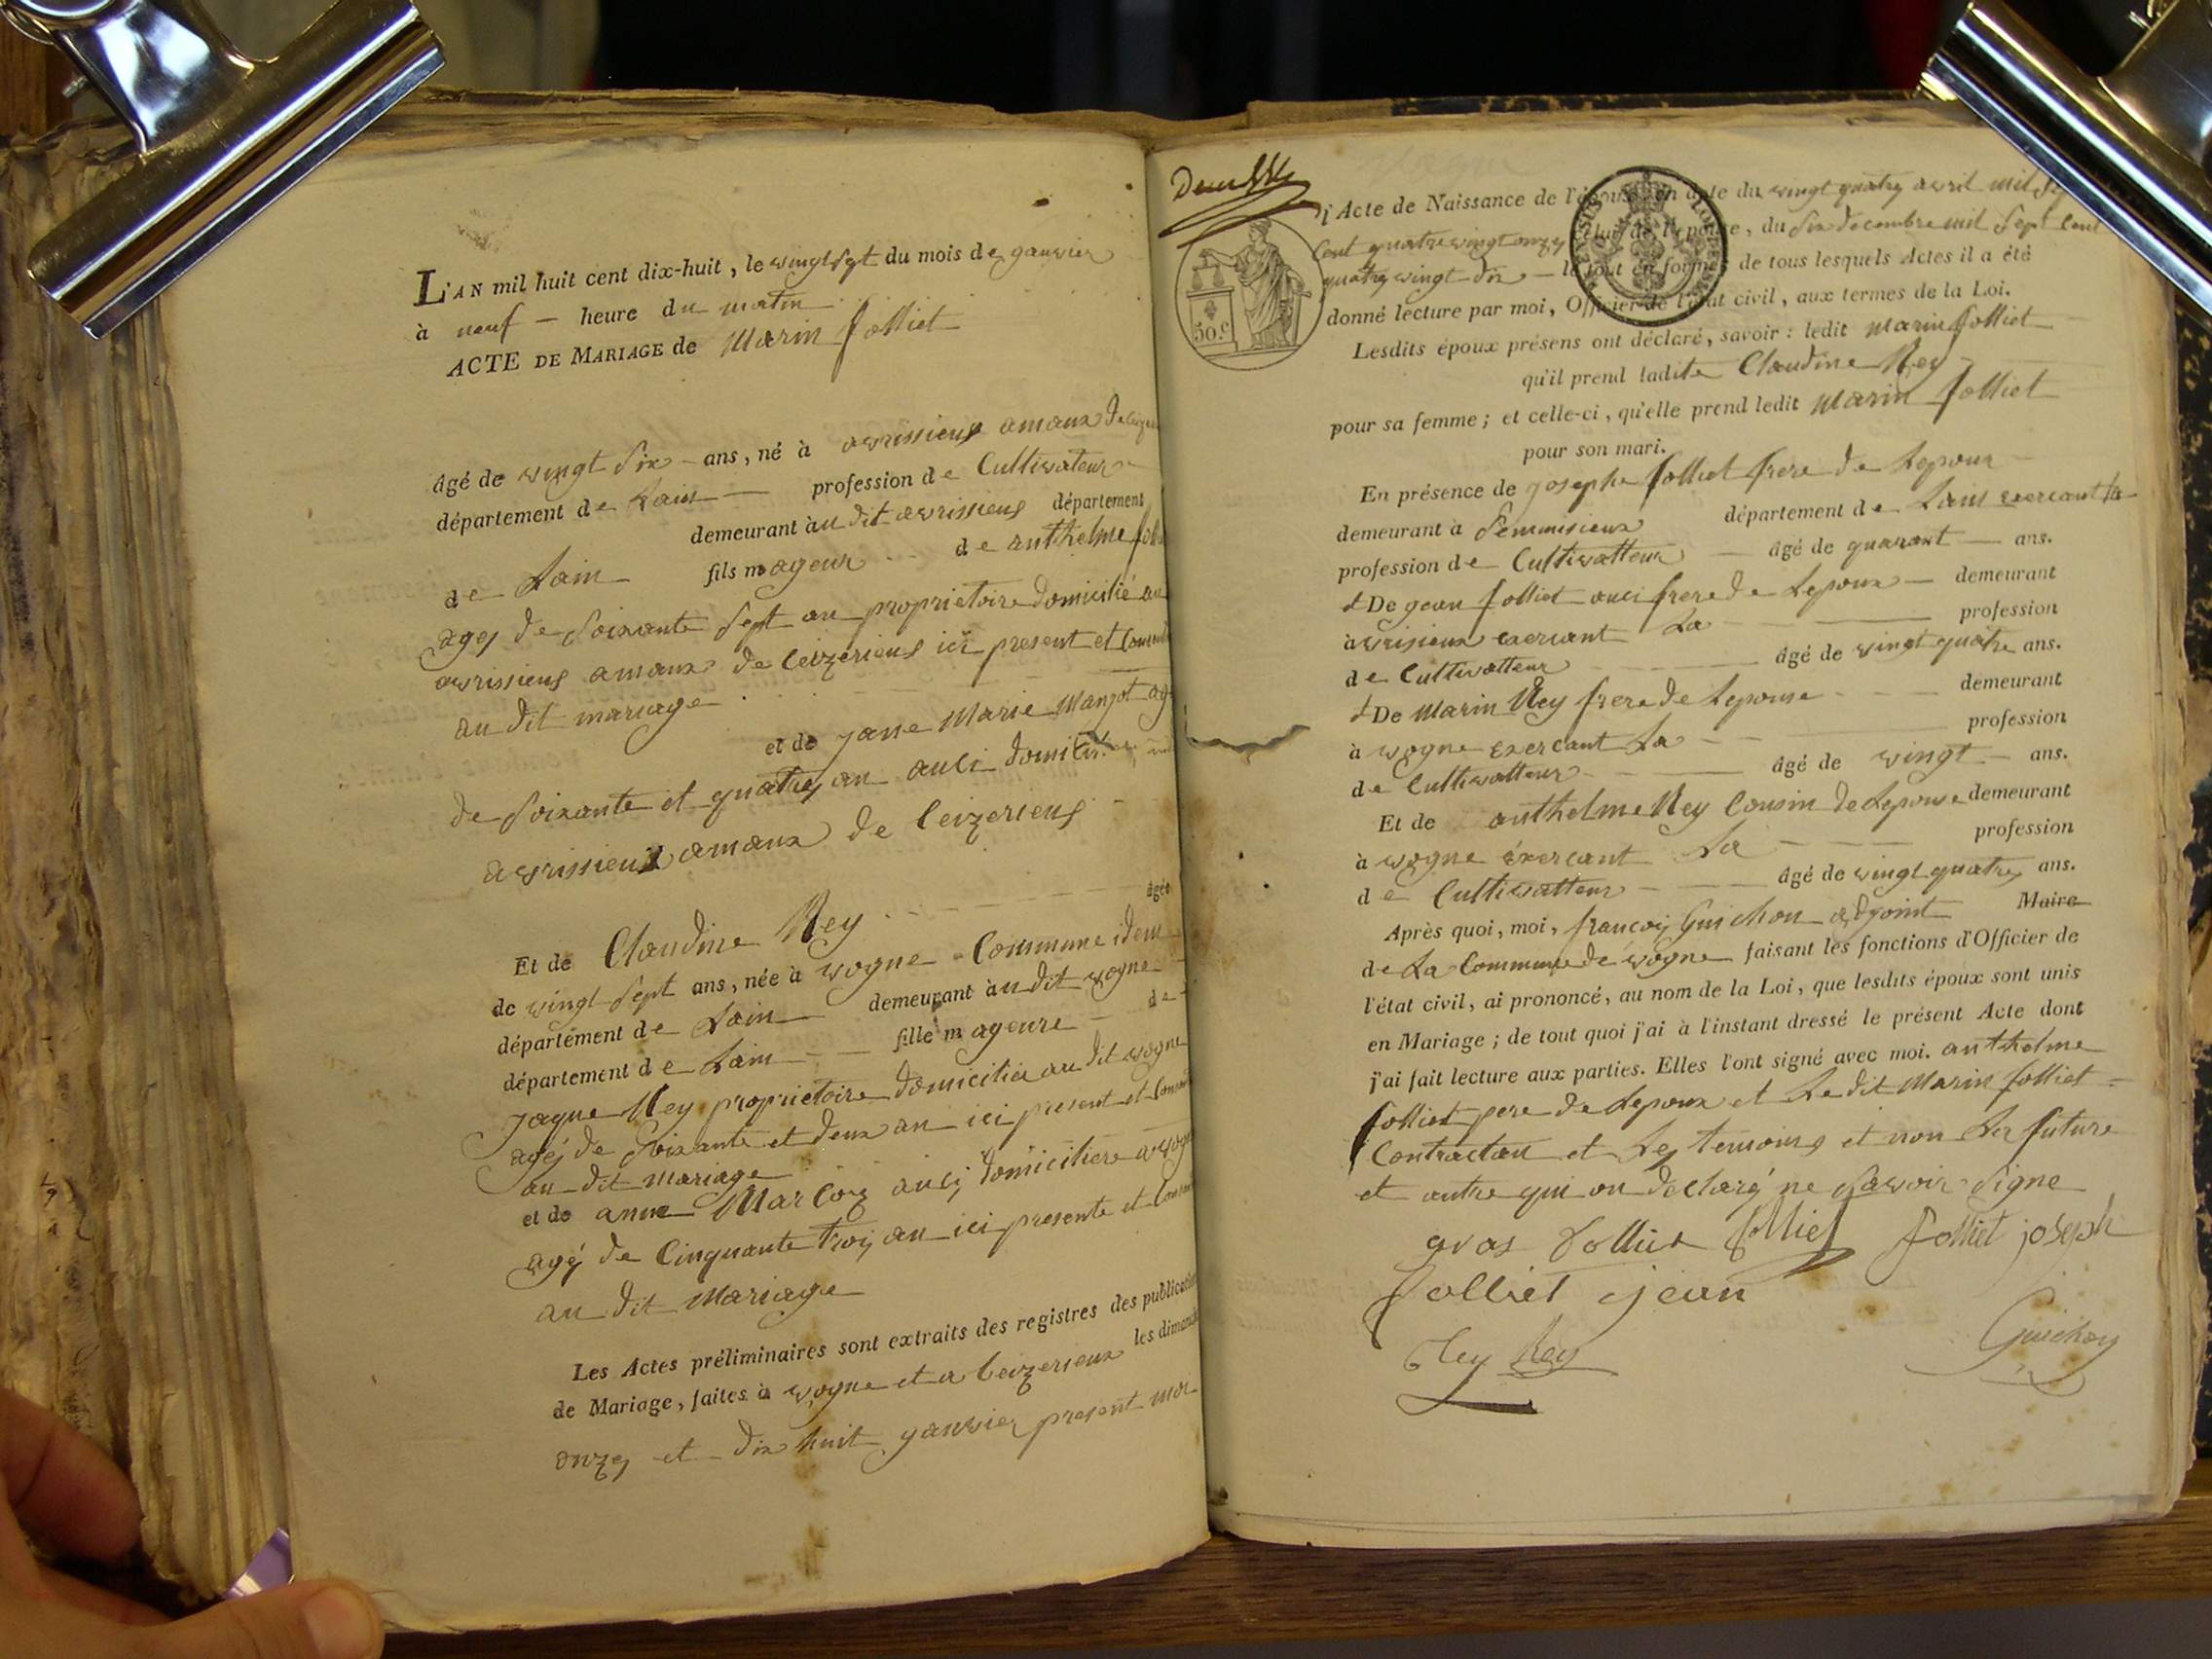 L'AN mil huit cent dix-huit, le vingt sept du mois de ganvier
à neuf — heure du matin
ACTE DE MARIAGE de Marin folliet
âgé de vingt six ans, né à avrissieux amaux
département de Lain — profession de Cultivateur
demeurant au dit avrissieux département
de Lain fils mageur de anthelme
agez de soixante sept an proprietaire domicilié au
avrissieux amaux de Ceizerieux ici present et
au dit mariage
et de jane Marie Manjot
de soixante et quatrez an auci
avrissieux amaux de Ceizerieux
Et de Claudine Rey âgée
de vingt sept ans, née à vogne Commune idem
département de Lain demeurant au dit vogne
département de Lain fille mageure de
jaque Rey proprietaire domicilié au dit vogne
agéz de soixante et deux an ici present et
au dit mariage
et de anne Marcoz auci domiciliere a
agéz de Cinquante troiz an ici presente et
au dit Mariage
Les Actes préliminaires sont extraits des registres des
de Mariage, faites à vogne et a Ceizerieux les
onze et dix huit ganvier present
l'Acte de Naissance de en date du vingt quatre avril mil
Cent quatre vingt onze du six decembre mil sept cent
quatre vingt dix — le tout en forme de tous lesquels Actes il a été
donné lecture par moi, Officier de l'état civil, aux termes de la Loi.
Lesdits époux présens ont déclaré, savoir : ledit Marin folliet
qu'il prend ladite Claudine Rey
pour sa femme ; et celle-ci, qu'elle prend ledit Marin folliet
pour son mari.
En présence de gosephe folliet frere de Lepoux
demeurant à département de Lain exercant la
profession de Cultivatteur — âgé de quarant — ans.
De gean folliet auci frere de Lepoux — demeurant
avrisieux exercant La profession
de Cultivatteur âgé de vingt quatre ans.
De Marin Rey frere de Lepouse demeurant
à vogne exercant La profession
de Cultivatteur âgé de vingt — ans.
Et de anthelme Rey Cousin de Lepouse demeurant
à vogne éxercant La profession
de Cultivatteur âgé de vingt quatrez ans.
Après quoi, moi, francoiz Guichon adgoint Maire
de La Commune de vogne faisant les fonctions d'Officier de
l'état civil, ai prononcé, au nom de la Loi, que lesdits époux sont unis
en Mariage ; de tout quoi j'ai à l'instant dressé le présent Acte dont
j'ai fait lecture aux parties. Elles l'ont signé avec moi. anthelme
folliet pere de Lepoux et Le dit Marin folliet
Contractan et Lez temoins et non La future
et autre qui on declaréz ne savoir signe
folliet folliet joseph
folliet jean
Rey Rey Guichon
50.c